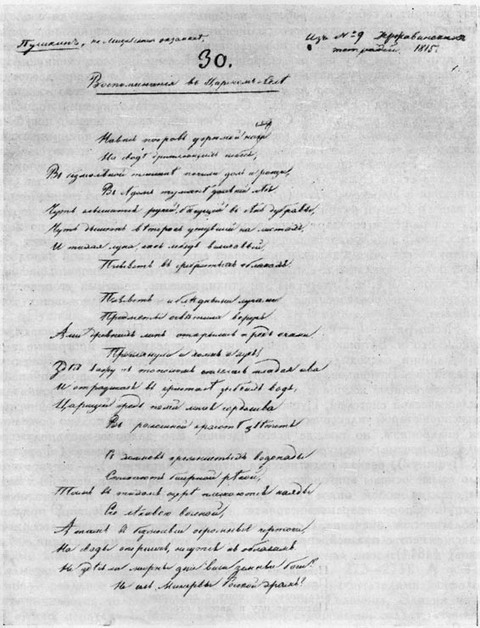 Пушкинъ,
Изъ №9 Державинскихъ
тетрадей. 1815.
30.
Воспоминанія въ Царскомъ Селѣ
Нависъ покровъ угрюмой нощи
На сводѣ дремлющихъ небесъ,
Въ безмолвной тишинѣ почили долъ и рощи,
Въ сѣдомъ туманѣ дальній лѣсъ
Чуть слышится ручей, бѣгущій въ сѣнь дубравы,
Чуть дышитъ вѣтерокъ уснувшій на листахъ,
И тихая луна, какъ лебедь величавой,
Плыветъ въ сребристыхъ облакахъ.
Плыветъ и блѣдными лучами
Предметы освѣтила вдругъ
Аллеи древнихъ липъ открылись предъ очами
Проглянули и холмъ и лугъ!
Здѣсь вижу съ тополомъ сплелась младая ива
И отразилась въ кристалѣ зыбкихъ водъ,
Царицей средь полей лилея горделива
Въ роскошной красотѣ цвѣтетъ.
Съ холмовъ кремнистыхъ водопады
Стекаютъ бисерной рѣкой,
Тамъ въ тихомъ озерѣ плескаются наяды
Его лѣнивою волной,
А тамъ въ безмолвіи огромные чертоги
На своды опершись, несутся къ облакамъ
Не здѣсь ли мирны дни вели земные боги?
Не сель Минервы Росской храмъ!